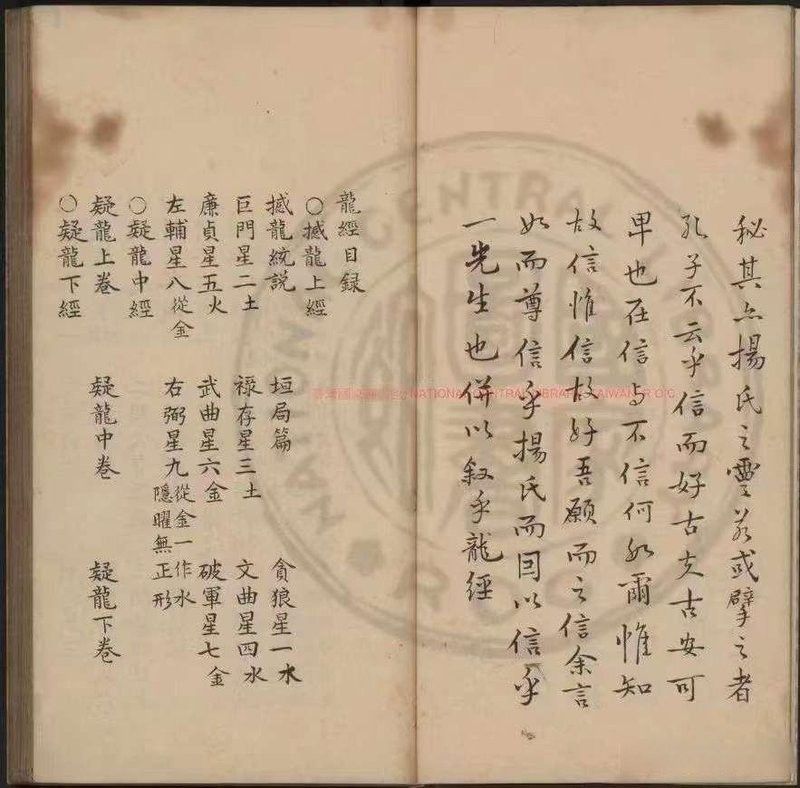 秘其亦楊氏之靈若或擘之者
孔子不云乎信而好古夫古安可
卑也在信与不信何如爾惟知
故信惟信故好吾願而之信余言
如而尊信乎楊氏而因以信乎
一先生也併以叙乎龍經
龍經目録
○撼龍上經
撼龍統説 垣局篇 貪狼星一水
巨門星二土 禄存星三土 文曲星四水
廉貞星五火 武曲星六金 破軍星七金
左輔星八從金 右弼星九從金一作水隱曜無正形
○疑龍中經
疑龍上卷 疑龍中卷 疑龍下卷
○疑龍下經
NATIONAL CENTRAL LIBRARY, TAIWAN R O C